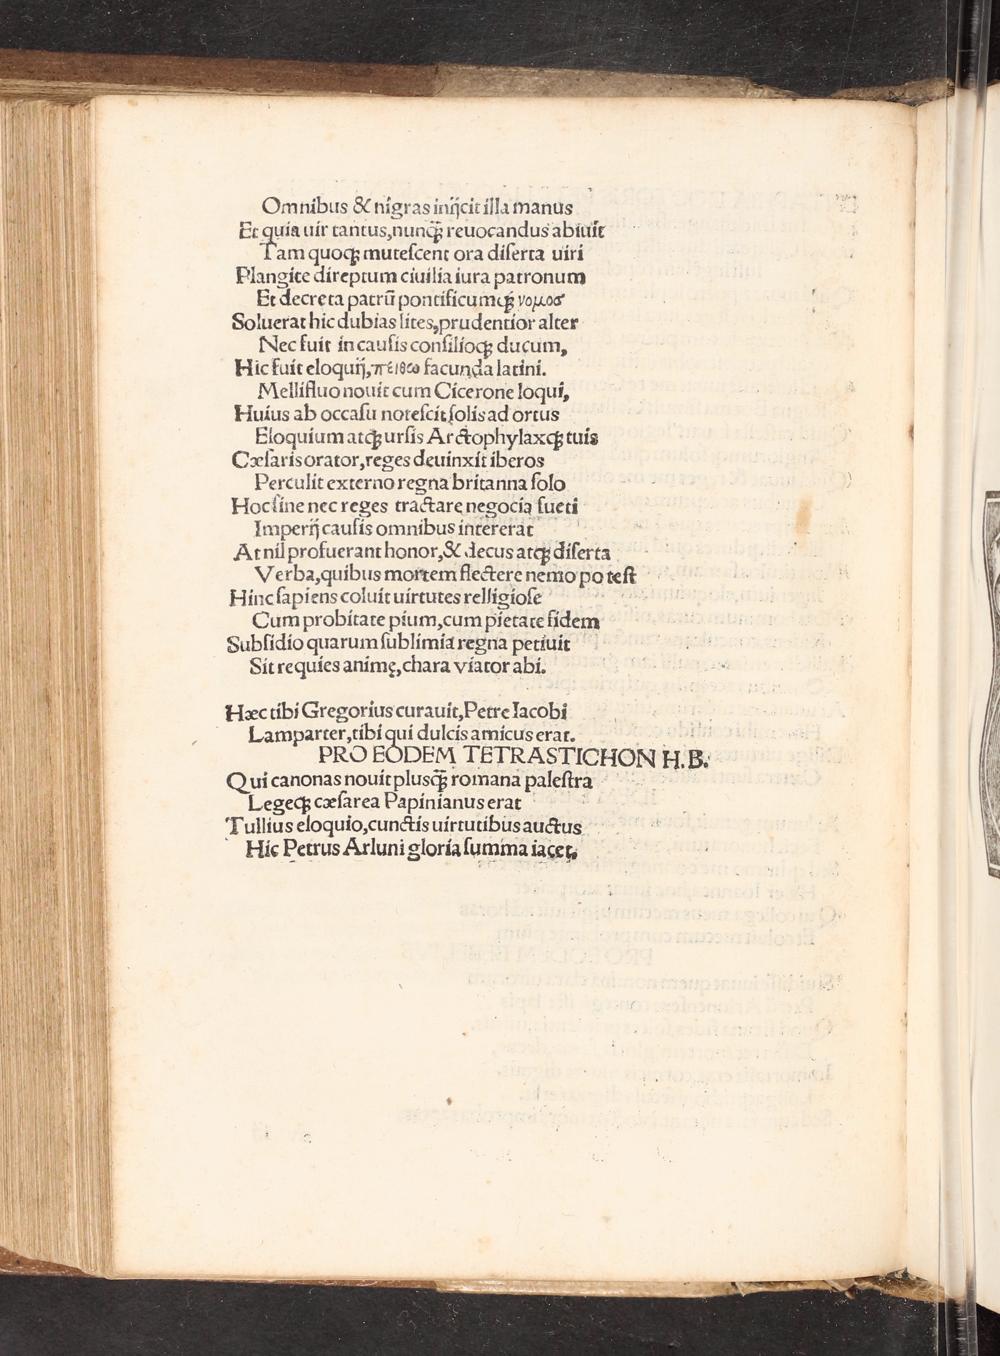 Omnibus & nigras inijcit illa manus
Et quia uir tantus,nunqꝫ reuocandus abiuit
Tam quoqꝫ mutescent ora diserta uiri
Plangite direptum ciuilia iura patronum
Et decreta patrū pontificumqꝫ νομοσ
Soluerat hic dubias lites,prudentior alter
Nec fuit in causis consilioqꝫ ducum,
Hic fuit eloquij,πέιθω facunda latini.
Mellifluo nouit cum Cicerone loqui,
Huius ab occasu notescit solis ad ortus
Eloquium atqꝫ ursis Arctophylaxqꝫ tuis
Cæsaris orator,reges deuinxit iberos
Perculit externo regna britanna solo
Hoc sine nec reges tractare negocia sueti
Imperij causis omnibus intererat
At nil profuerant honor,& decus atqꝫ diserta
Verba,quibus mortem flectere nemo potest
Hinc sapiens coluit uirtutes relligiose
Cum probitate pium,cum pietate fidem
Subsidio quarum sublimia regna petiuit
Sit requies animę,chara viator abi.
Hæc tibi Gregorius curauit,Petre Iacobi
Lamparter,tibi qui dulcis amicus erat.
PRO EODEM TETRASTICHON H.B.
Qui canonas nouit plusqꝫ romana palestra
Legeqꝫ cæsarea Papinianus erat
Tullius eloquio,cunctis uirtutibus auctus
Hic Petrus Arluni gloria summa iacet.